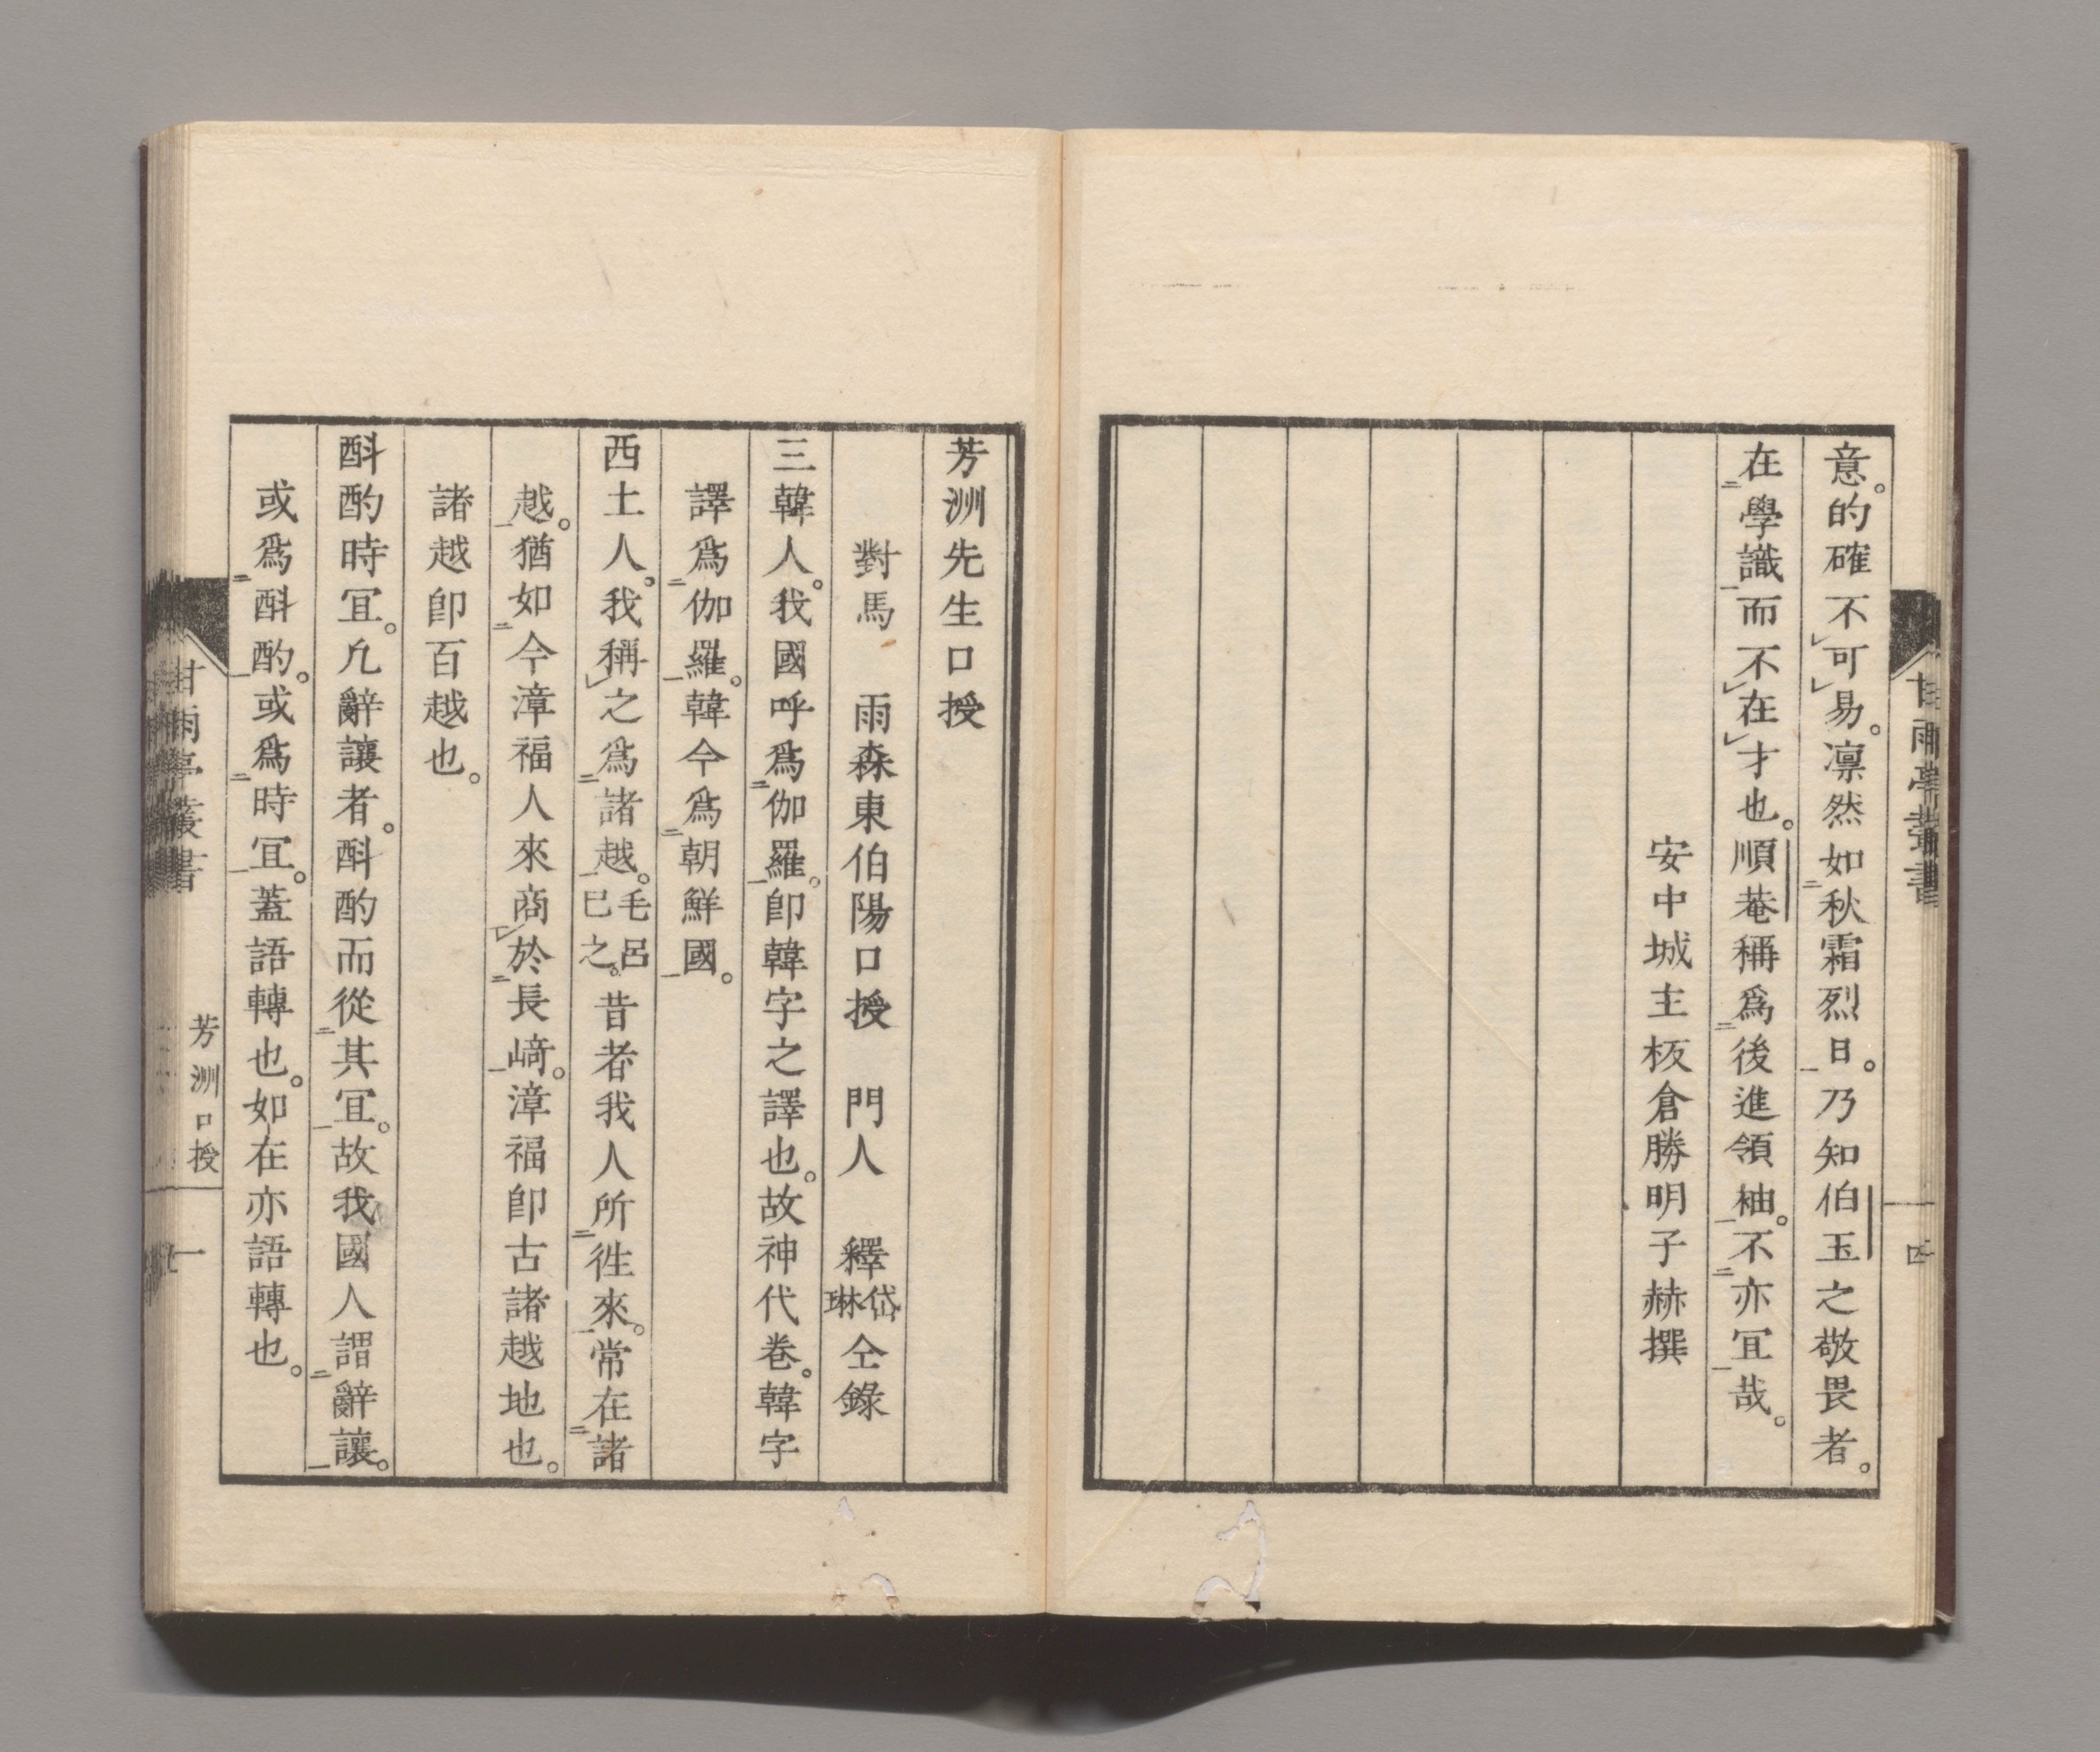 意。的確不可易。凛然如秋霜烈日。乃知伯玉之敬畏者。
在學識而不在才也。順菴稱爲後進領袖。不亦冝哉。
安中城主板倉勝明子赫撰
甘雨亭叢書
四
芳洲先生口授
對馬 雨森東伯陽口授 門人 釋岱琳仝錄
三韓人。我國呼爲伽羅。卽韓字之譯也。故神代卷。韓字
譯爲伽羅。韓今爲朝鮮國。
西土人。我稱之爲諸越。毛呂巳之。昔者我人所徃來。常在諸
越。猶如今漳福人來商於長﨑。漳福卽古諸越地也。
諸越卽百越也。
斟酌時冝。凢辭讓者。斟酌而從其冝。故我國人謂辭讓。
或爲斟酌。或爲時冝。蓋語轉也。如在亦語轉也。
甘雨亭叢書
芳洲口授
一